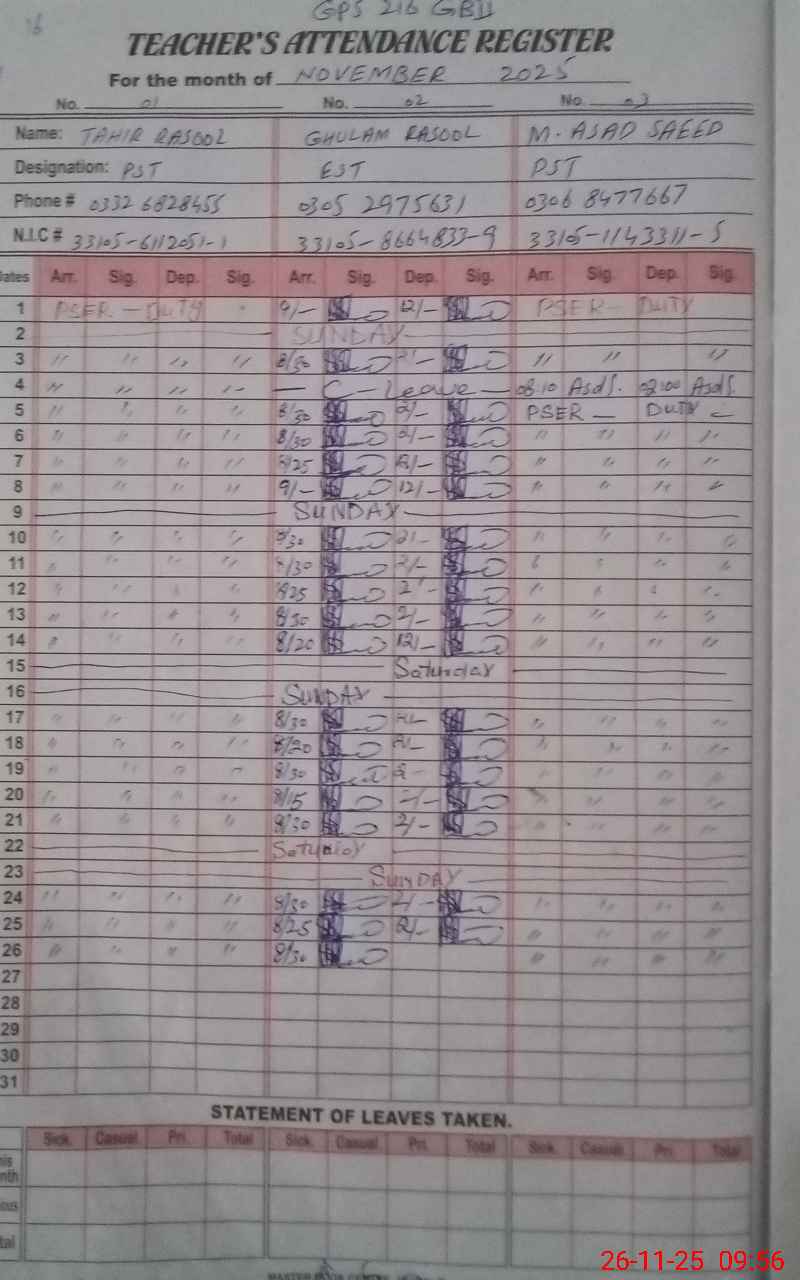 16
GPS 216 GBII
TEACHER'S ATTENDANCE REGISTER
For the month of NOVEMBER 2025
No. 01 No. 02 No. 03
Name: TAHIR RASOOL GHULAM RASOOL M. ASAD SAEED
Designation: PST EST PST
Phone # 0332 6828455 0305 2975631 0306 8477667
N.I.C # 33105-6112051-1 33105-8664833-9 33105-1143311-5
Dates Arr. Sig. Dep. Sig. Arr. Sig. Dep. Sig. Arr. Sig. Dep. Sig.
1 PSER - DUTY 9/- 12/- PSER - DUTY
2 SUNDAY
3 " " " " 8/30 2/- " " "
4 " " " " C-Leave 08:10 Asdf. 02:00 Asdf.
5 " " " " 8/30 2/- PSER - DUTY
6 " " " " 8/30 2/- " " " "
7 " " " " 8/25 2/- " " " "
8 " " " " 9/- 12/- " " " "
9 SUNDAY
10 " " " " 8/30 2/- " " " "
11 " " " " 8/30 2/- " " " "
12 " " " " 8/25 2/- " " " "
13 " " " " 8/30 2/- " " " "
14 " " " " 8/20 12/- " " " "
15 Saturday
16 SUNDAY
17 " " " " 8/30 2/- " " " "
18 " " " " 8/20 2/- " " " "
19 " " " " 8/30 2- " " " "
20 " " " " 8/15 2/- " " " "
21 " " " " 8/30 2/- " " "
22 Saturday
23 SUNDAY
24 " " " " 8/30 2/- " " " "
25 " " " " 8/25 2/- " " " "
26 " " " " 8/30 " " " "
27
28
29
30
31
STATEMENT OF LEAVES TAKEN.
Sick. Casual. Pri. Total Sick. Casual. Pri. Total Sick. Casual. Pri. Total
26-11-25 09:56